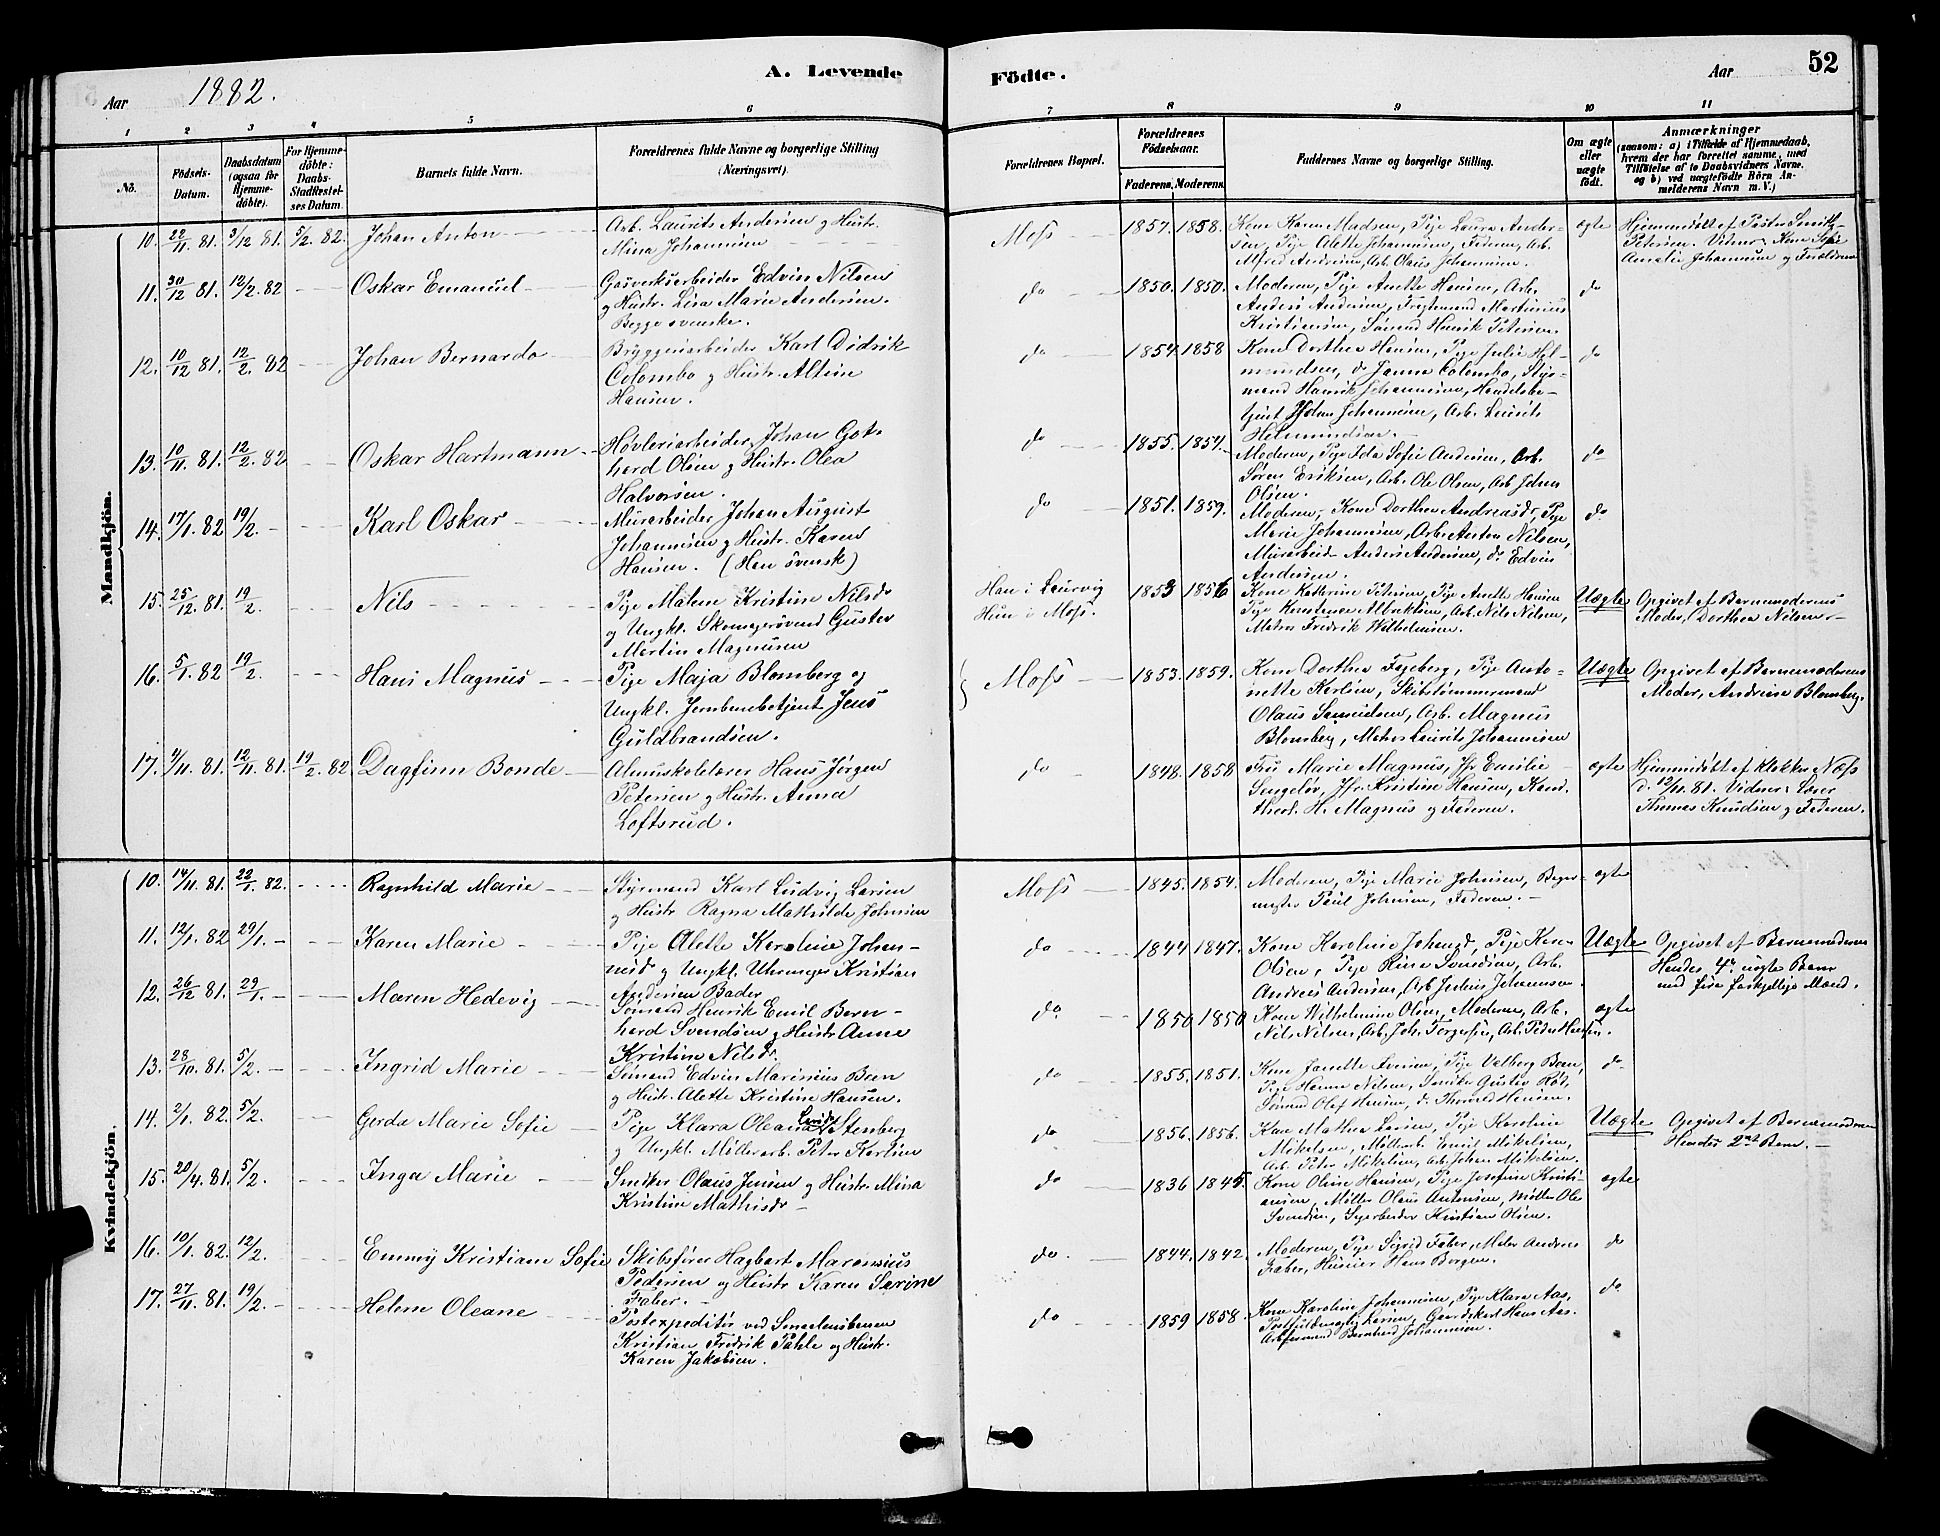 Aar 1882. A. Levende Födte. Aar 52
1 2 3 4 5 6 7 8 9 10 11
No.
Födsels-
Datum.
Daabsdatum
(ogsaa for
Hjemme-
döbte).
For Hjemme-
döbte:
Daabs-
Stadfæstel-
ses Datum.
Barnets fulde Navn.
Forældrenes fulde Navne og borgerlige Stilling
(Næringsvei).
Forældrenes Bopæl.
Forældrenes
Födselsaar.
Faderens. Moderens.
Faddernes Navne og borgerlige Stilling.
Om ægte
eller
uægte
födt.
Anmærkninger
(saasom: a) i Tilfælde af Hjemmedaab,
hvem der har forrettet samme, med
Tilföielse af to Daabsvidners Navne.
og b) ved uægtefödte Börn An-
melderens Navn m. V.)
Mandkjön.
10. 22/11 81. 3/12 81. 5/2. 82. Johan Anton
Arb. Laurits Andersen og Hustr.
Mina Johannesen
Moss 1857. 1858.
Kone Karen Madsen, Pige Laura Ander-
sen, Pige Alette Johannesen, Faderen, Arb.
Alfred Andersen, Arb. Olaus Johannesen.
ægte
Hjemmedöbt af Pastor Smith
Petersen. Vidner: Kone Sofie
Amalie Johannesen og Forældrene
11. 30/12 81. 12/2. 82 Oskar Emanuel
Gasverksarbeider Edvin Nilsen
og Hustr. Lisa Marie Andersen.
Begge svenske.
do 1850. 1850.
Moderen, Pige Anette Hansen, Arb.
Anders Andersen, Fragtmand Martinius
Kristiansen, Sömand Henrik Petersen
do
12. 10/12 81. 12/2. 82 Johan Bernardo
Bryggeriarbeider Karl Didrik
Colombo og Hustr. Altine
Hansen.
do 1854. 1858
Kone Dorthea Hansen, Pige Julie Hel-
mundsen, do Janna Colombo, Styr-
mand Henrik Johannesen, Handelsbe-
tjent Johan Johannesen, Arb. Laurits
Helmundsen.
do
13. 10/11 81. 12/2. 82 Oskar Hartmann
Hövleriarbeider Johan Got-
hard Olsen og Hustr. Olea
Halvorsen.
do 1855. 1857.
Moderen, Pige Ida Sofie Andersen, Arb.
Sören Eriksen, Arb. Ole Olsen, Arb. Johan
Olsen.
do
14. 17/1. 82 19/2. Karl Oskar
Murarbeider Johan August
Johannesen og Hustr. Karen
Hansen. (Han svensk)
do 1851. 1859.
Moderen, Kone Dorthea Andreasdr, Pige
Marie Johannesen, Arb. Anton Nilsen,
Murarbeid. Anders Andersen, do Edvin
Andersen.
do
15. 25/12 81. 19/2. Nils
Pige Malene Kristine Nilsdr
og Ungkl. Skomagersvend Gustav
Martin Magnusen
Han i Laurvig
Hun i Moss. 1853 1856
Kone Katherine Petersen, Pige Anette Hansen
Pige Konstanse Albrektsen, Arb. Nils Nilsen,
Matros Fredrik Wilhelmsen.
Uægte
Opgivet af Barnemoderens
Moder, Dorthea Nilsen
16. 5/1. 82 19/2. Hans Magnus
Pige Maja Blomberg og
Ungkl. Jernbanebetjent Jens
Guldbrandsen.
Moss 1853. 1859.
Kone Dorthea Fageberg, Pige Anto-
nette Karlsen, Skibstömmermand
Olaus Samuelsen, Arb. Magnus
Blomberg, Matros Laurits Johannesen
Uægte
Opgivet af Barnemoderens
Moder, Andrine Blomberg.
17. 4/11. 81. 12/11. 81. 19/2. 82 Dagfinn Bonde
Almuskolelærer Hans Jörgen
Petersen og Hustr. Anna
Loftsrud.
do 1848. 1858
Fru Marie Magnus, Jfr. Emilie
Sengelöv, Jfr. Kristine Hansen, Kand.
theol. H. Magnus og Faderen.
ægte
Hjemmedöbt af klokker Næss
d. 12/11. 81. Vidner: Lærer
Thomas Knudsen og Faderen.
Kvindekjön.
10. 14/11. 81. 22/1. 82. Ragnhild Marie
Styrmand Karl Ludvig Larsen
og Hustr. Ragna Mathilde Johnsen
Moss 1845. 1854.
Moderen, Pige Marie Johnsen, Bager-
mester Paul Johnsen, Faderen.
ægte
11. 12/1. 82 29/1. Karen Marie
Pige Alette Karoline Johan-
nesd og Ungkl. Uhrmager Kristian
Andersen Bader
do 1844 1847.
Kone Karoline Johansd, Pige Karen
Olsen, Pige Rina Svendsen, Arb.
Andreas Andersen, Arb. Julius Johannesen.
Uægte
Opgivet af Barnemoderen
Hendes 4de uægte Barn
med fire forskjellige Mænd.
12. 26/12 81. 29/1. Maren Hedevig
Sömand Henrik Emil Bern-
hard Svendsen og Hustr. Anne
Kristine Nilsdr.
do 1850 1850
Kone Wilhelmine Olsen, Moderen, Arb.
Nils Nilsen, Arb. Joh. Torgersen, Arb. Peder Hansen.
ægte
13. 28/10. 81. 5/2. Ingrid Marie
Sömand Edvin Marinius Been
og Hustr. Alette Kristine Hansen.
do 1855. 1851.
Kone Janette Iversen, Pige Valborg Been,
Pige Hanna Nilsen, Snedker Gustav Röd,
Sömand Olaf Hansen, do Thorvald Hansen.
do
14. 2/1. 82. 5/2. Gerda Marie Sofie
Pige Klara Oleana Lovise Stenberg
og Ungkl. Möllerarb. Peter Karlsen
do 1856. 1856.
Kone Mathea Larsen, Pige Karoline
Mikelsen, Möllerarb. Emil Mikelsen,
Arb. Peter Mikelsen, Arb. Johan Mikelsen.
Uægte
Opgivet af Barnemoderen
Hendes 2det Barn.
15. 20/4. 81. 5/2. Inga Marie
Snedker Olaus Jensen og Hustr. Mina
Kristine Mathisdr
do 1836 1845.
Kone Oline Hansen, Pige Josefine Kristi-
ansen, Möller Olaus Antonsen, Möller Ole
Svendsen, Sagarbeider Kristian Olsen.
ægte
16. 10/1. 82. 12/2. Emmy Kristiane Sofie
Skibsförer Hagbart Marensius
Pedersen og Hustr. Karen Sarine
Faber.
do. 1844. 1842.
Moderen, Pige Sigrid Faber, Maler Andreas
Faber, Huseier Hans Borgen.
do
17. 27/11. 81. 19/2. Helene Oleane
Postexpeditör ved Smaalensbanen
Kristian Fredrik Pahle og Hustr.
Karen Jakobsen.
do 1859 1858.
Kone Karoline Johannesen, Pige Klara Aas,
Postfuldmægtig Larsen, Gaardskarl Hans Aas.
Arbeismand Bernhard Johannesen.
do